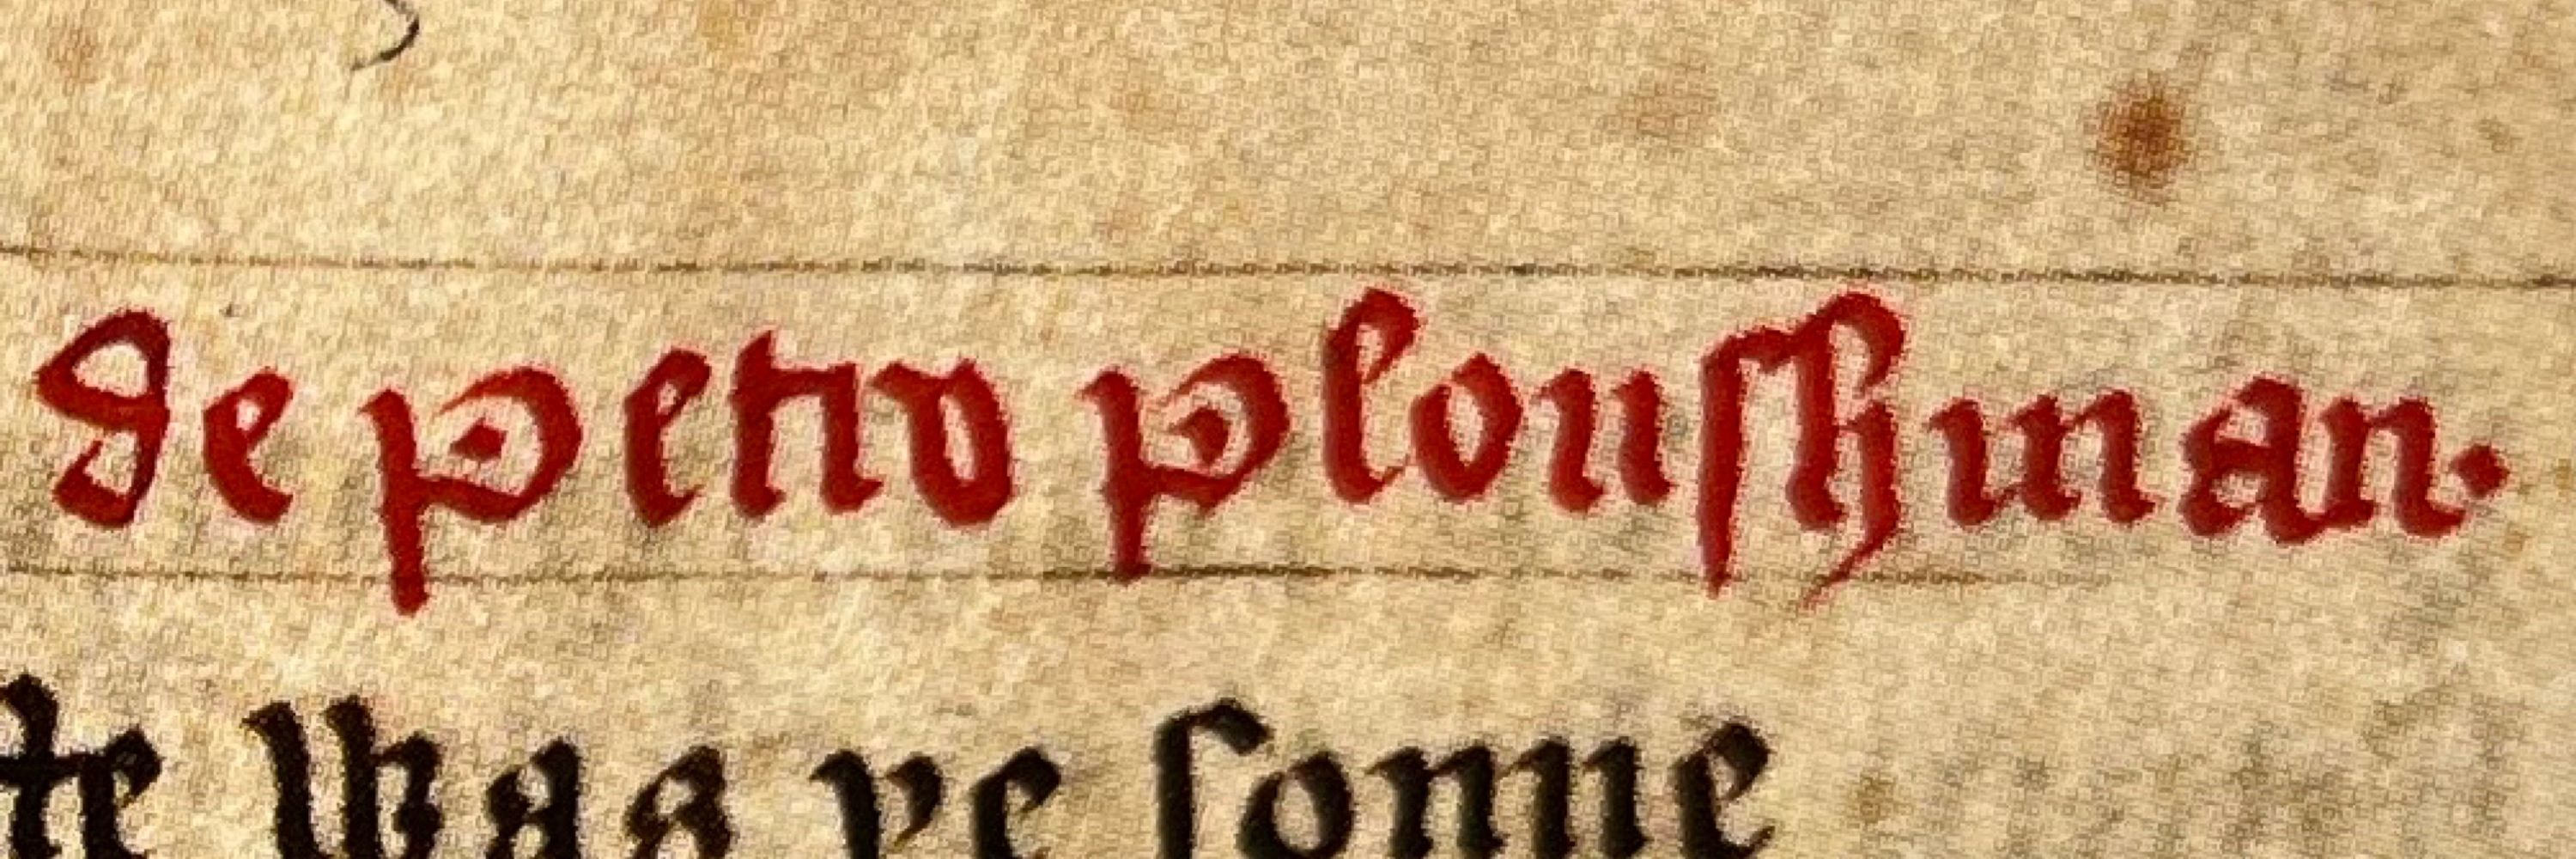 de petro plouſhman.
te was þe ſonne